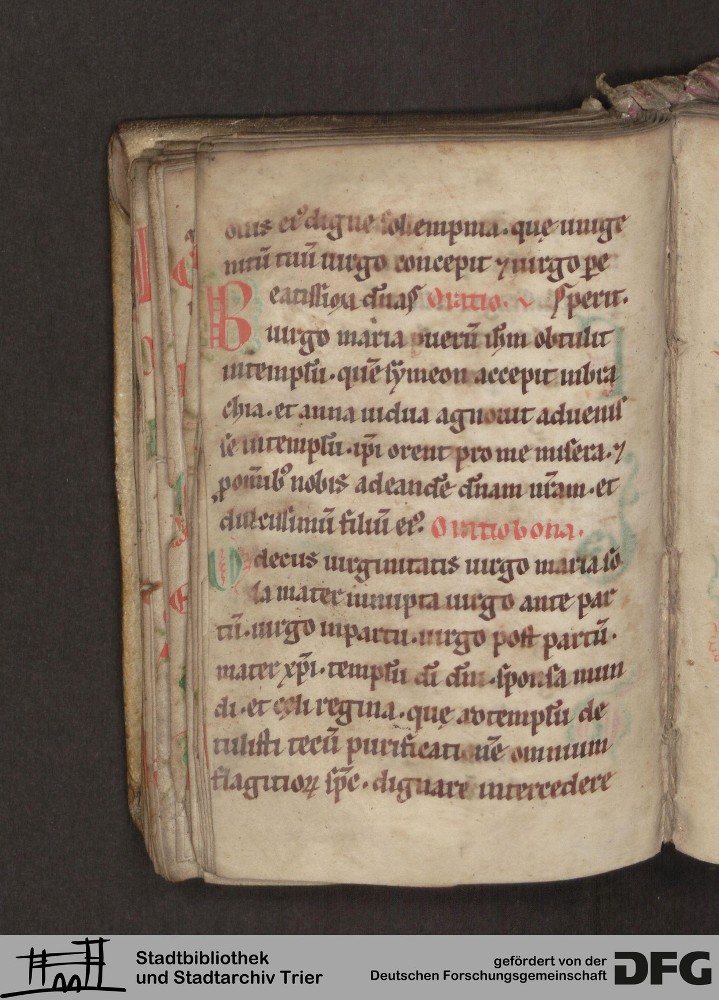 ouis et digne sollempnia. que unige
nitū tuū uirgo concepit ⁊ uirgo pe
Beatissima dn̄as Oratio. sperit.
uirgo maria puerū ih̄m obtulit
in templū. quē sẏmeon accepit in bra
chia. et anna uidua agnouit aduenis
se in templū. ip̄i orent pro me misera. ⁊
pōnib; nobis adeande dn̄am nr̄am. et
dulcissimū filiū ei⁹. Oratio bona.
O decus uirginitatis uirgo maria so
la mater innupta uirgo ante par
tū. uirgo in partu. uirgo post partū.
mater xp̄i. templū dī dn̄i. sponsa mun
di. et cęli regina. quę ad templū de
tulisti tecū purificationē omnium
flagitioꝝ sp̄e. dignare intercedere
Stadtbibliothek
und Stadtarchiv Trier
gefördert von der
Deutschen Forschungsgemeinschaft
DFG